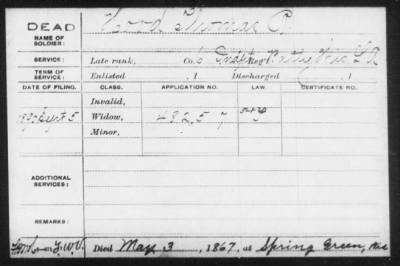 DEAD
NAME OF SOLDIER:
Thomas C.
SERVICE:
Late rank, Co. 6
TERM OF SERVICE:
Enlisted , 1 Discharged , 1
DATE OF FILING. CLASS. APPLICATION NO. LAW. CERTIFICATE NO.
Invalid,
1890 Sept 5 Widow, 482,57
Minor,
ADDITIONAL SERVICES:
REMARKS:
Died May 3, 1867, at Spring Green, Wis